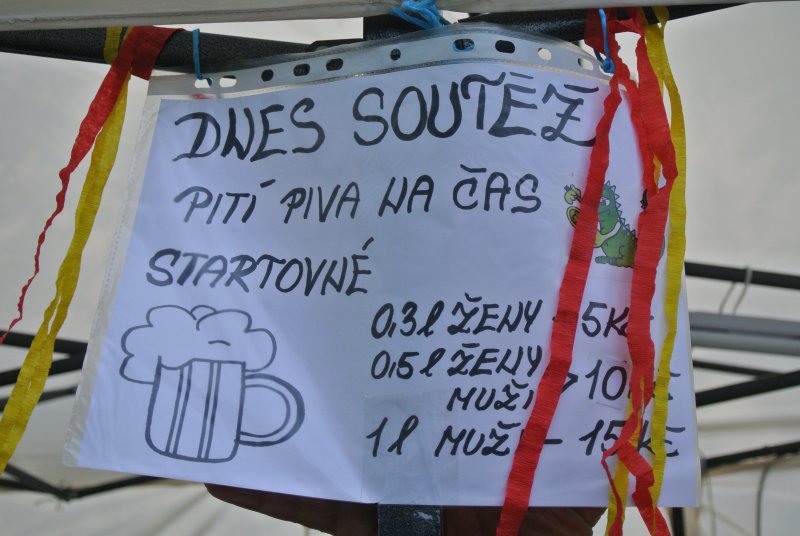 DNES SOUTĚŽ
PITÍ PIVA NA ČAS
STARTOVNÉ
0,3l ŽENY - 5Kč
0,5l ŽENY
MUŽI > 10Kč
1l MUŽI - 15Kč